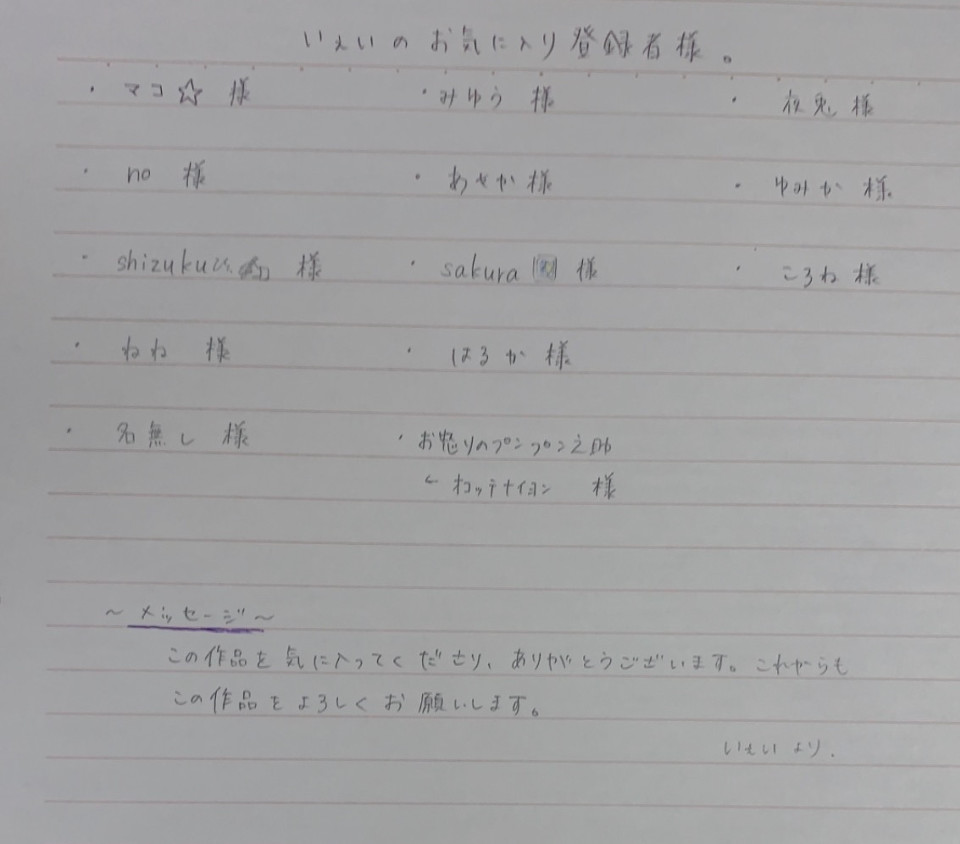 いぇいのお気に入り登録者様。
・マコ☆ 様 ・みゆう 様 ・夜兎 様
・no 様 ・あやか 様 ・ゆみか 様
・shizuku 様 ・sakura 様 ・ころね 様
・ねね 様 ・はるか 様
・名無し 様 ・お怒りのプンプン之助
オコッテナイヨン 様
～メッセージ～
この作品を気に入ってくださり、ありがとうございます。これからも
この作品をよろしくお願いします。
いぇいより.